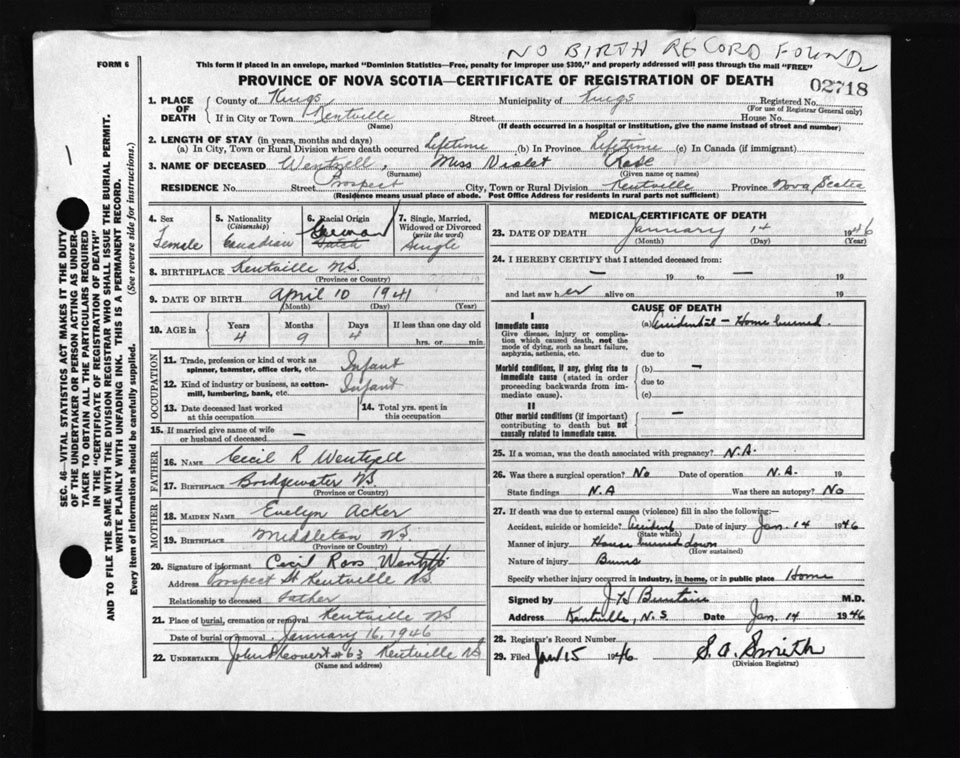 NO BIRTH RECORD FOUND
FORM 6
This form if placed in an envelope, marked "Dominion Statistics—Free, penalty for improper use $300," and properly addressed will pass through the mail "FREE"
PROVINCE OF NOVA SCOTIA—CERTIFICATE OF REGISTRATION OF DEATH
02718
1. PLACE OF DEATH County of Kings Municipality of Kings Registered No. (For use of Registrar General only)
If in City or Town Kentville (Name) Street House No.
(If death occurred in a hospital or institution, give the name instead of street and number)
2. LENGTH OF STAY (in years, months and days)
(a) In City, Town or Rural Division where death occurred Lifetime (b) In Province Lifetime (c) In Canada (if immigrant)
3. NAME OF DECEASED Wentzell, Miss Violet Rose
(Surname) (Given name or names)
RESIDENCE No. Street Prospect City, Town or Rural Division Kentville Province Nova Scotia
(Residence means usual place of abode. Post Office Address for residents in rural parts not sufficient)
4. Sex Female
5. Nationality (Citizenship) Canadian
6. Racial Origin German Dutch
7. Single, Married, Widowed or Divorced (write the word) Single
8. BIRTHPLACE Kentville NS.
(Province or Country)
9. DATE OF BIRTH April 10 1941
(Month) (Day) (Year)
10. AGE in Years 4 Months 9 Days 4 If less than one day old hrs. or min.
OCCUPATION
11. Trade, profession or kind of work as spinner, teamster, office clerk, etc. Infant
12. Kind of industry or business, as cotton-mill, lumbering, bank, etc. Infant
13. Date deceased last worked at this occupation
14. Total yrs. spent in this occupation
15. If married give name of wife or husband of deceased —
FATHER
16. NAME Cecil R Wentzell
17. BIRTHPLACE Bridgewater NS
(Province or Country)
MOTHER
18. MAIDEN NAME Evelyn Acker
19. BIRTHPLACE Middleton NS.
(Province or Country)
20. Signature of informant Cecil Ross Wentzell
Address Prospect St Kentville NS.
Relationship to deceased Father
21. Place of burial, cremation or removal Kentville NS
Date of burial or removal January 16, 1946
22. UNDERTAKER #63 Kentville NS
(Name and address)
MEDICAL CERTIFICATE OF DEATH
23. DATE OF DEATH January 14 1946
(Month) (Day) (Year)
24. I HEREBY CERTIFY that I attended deceased from:
— 19 to — 19
and last saw her alive on 19
CAUSE OF DEATH
I
Immediate cause (a) Accidental — Home burned.
Give disease, injury or complication which caused death, not the mode of dying, such as heart failure, asphyxia, asthenia, etc.
due to
Morbid conditions, if any, giving rise to immediate cause (stated in order proceeding backwards from immediate cause).
(b) —
due to
(c)
II
Other morbid conditions (if important) contributing to death but not causally related to immediate cause. —
25. If a woman, was the death associated with pregnancy? N.A.
26. Was there a surgical operation? No Date of operation N.A. 19
State findings N.A Was there an autopsy? No
27. If death was due to external causes (violence) fill in also the following:—
Accident, suicide or homicide? Accident Date of injury Jan. 14 1946
(State which)
Manner of injury House burned down
(How sustained)
Nature of injury Burns
Specify whether injury occurred in industry, in home, or in public place Home
Signed by M.D.
Address Kentville, N.S Date Jan. 14 1946
28. Registrar's Record Number
29. Filed Jan 15 1946 S. A. Smith
(Division Registrar)
SEC. 46—VITAL STATISTICS ACT MAKES IT THE DUTY
OF THE UNDERTAKER OR PERSON ACTING AS UNDERTAKER TO OBTAIN ALL THE PARTICULARS REQUIRED
IN THE "CERTIFICATE OF REGISTRATION OF DEATH"
AND TO FILE THE SAME WITH THE DIVISION REGISTRAR WHO SHALL ISSUE THE BURIAL PERMIT.
WRITE PLAINLY WITH UNFADING INK. THIS IS A PERMANENT RECORD.
Every item of information should be carefully supplied. (See reverse side for instructions.)